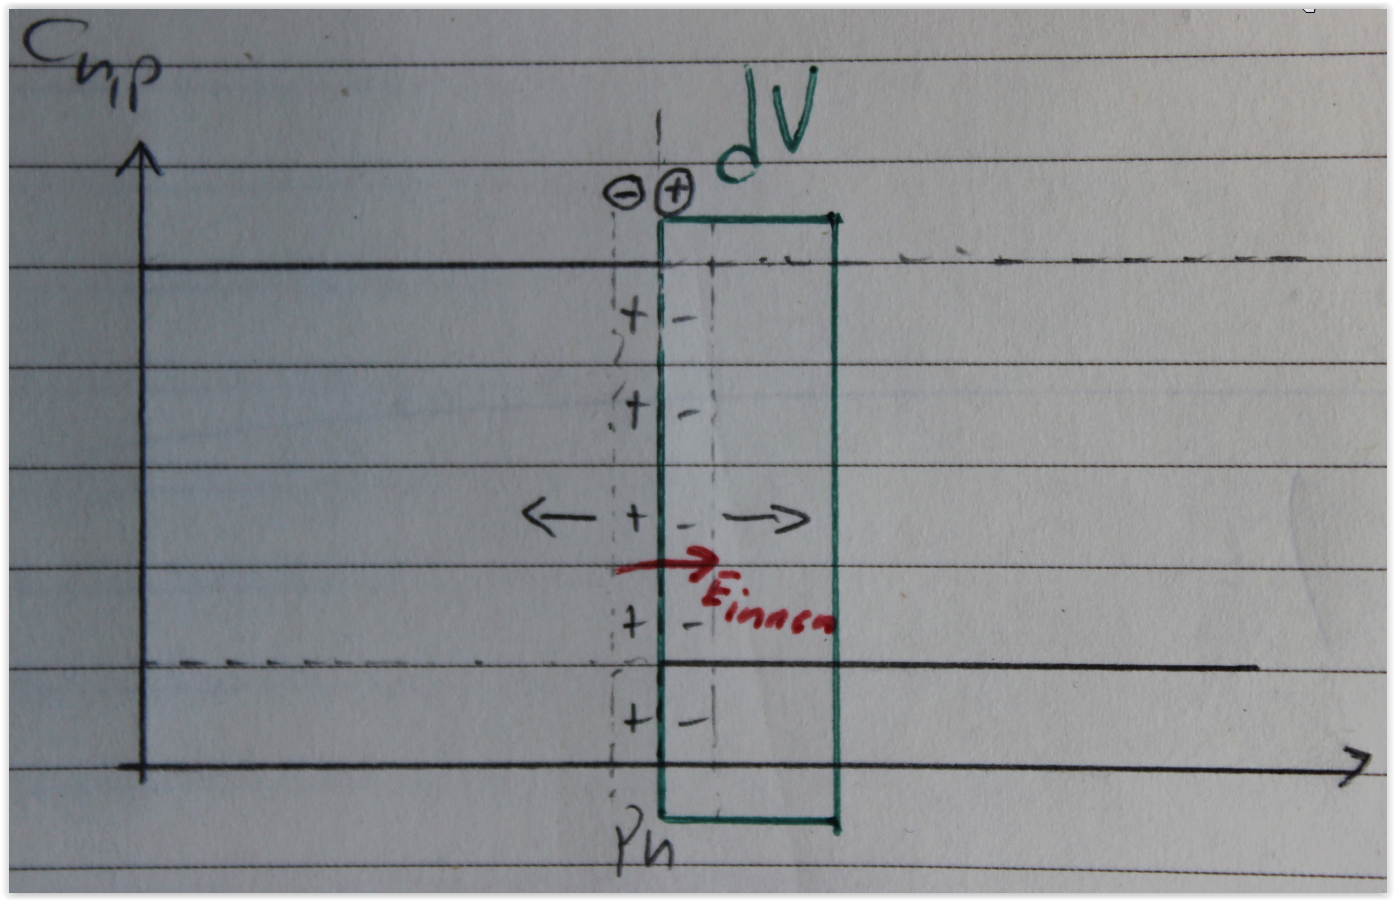 Cn,p
dV
⊖ ⊕
+ -
+ -
+ -
Einnen
+ -
+ -
pn